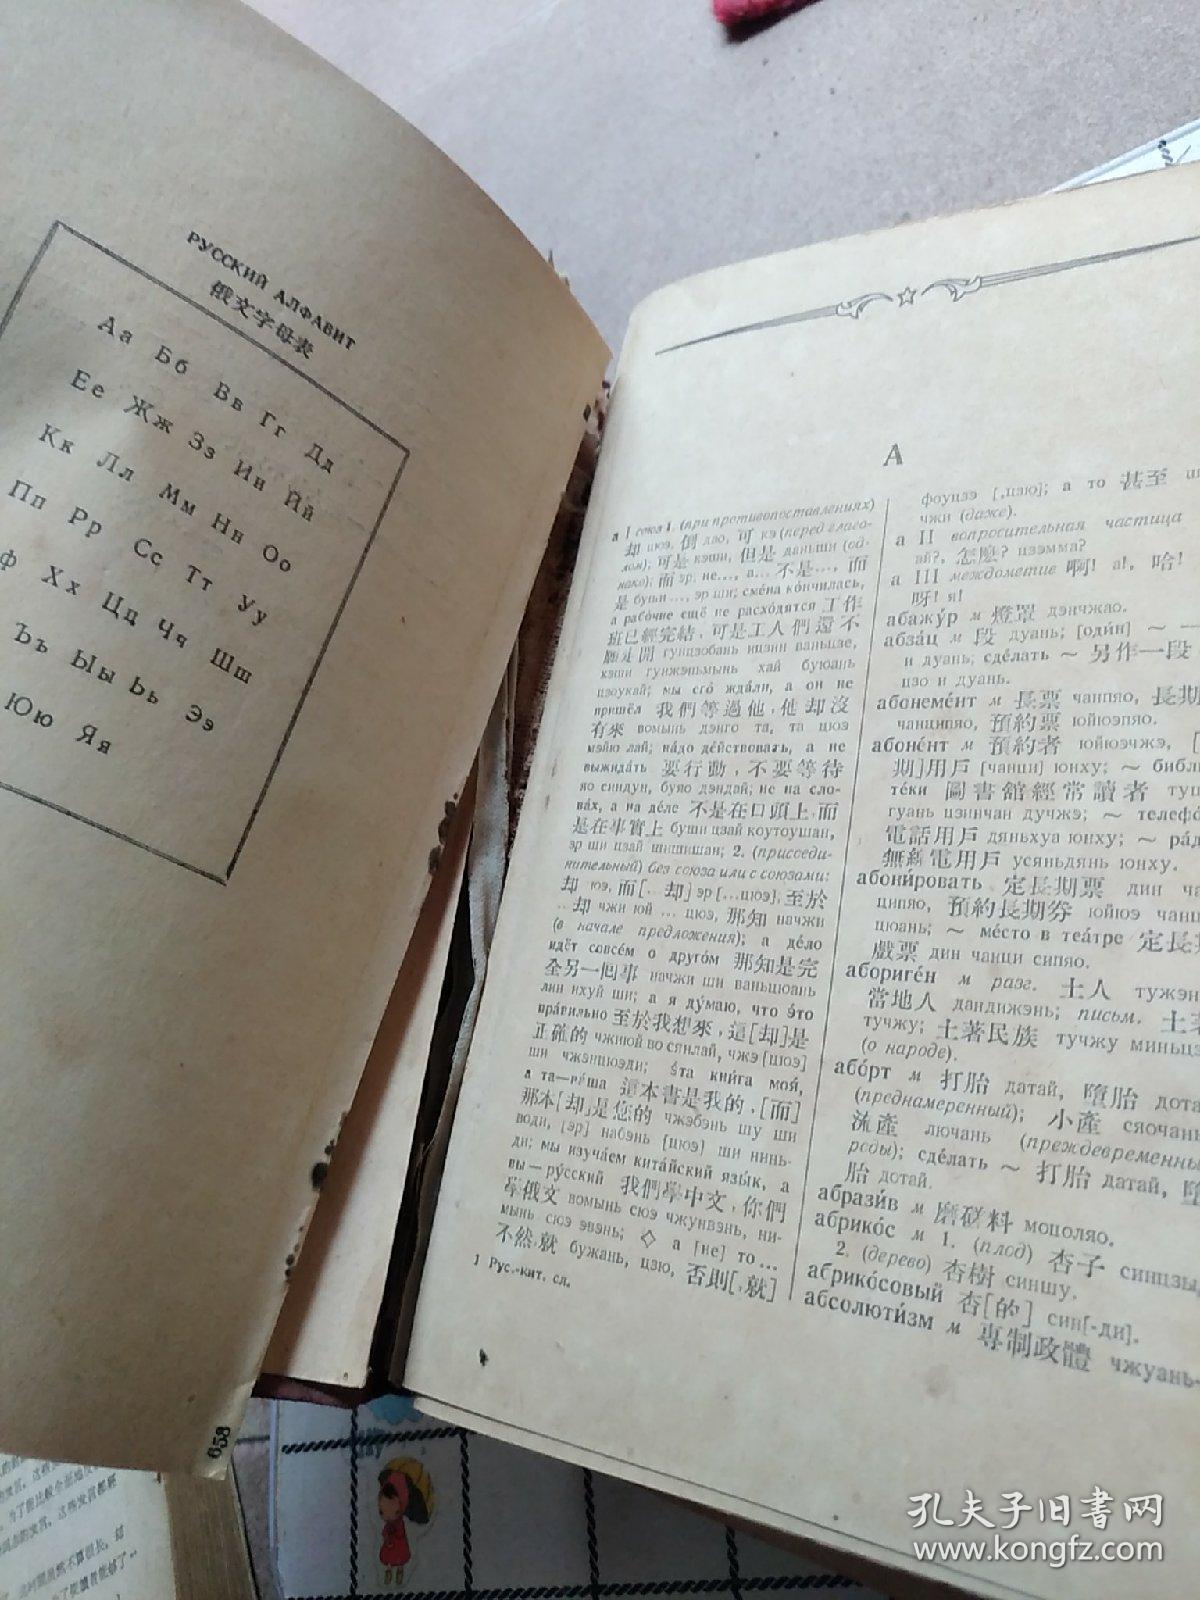 РУССКИЙ АЛФАВИТ
俄文字母表
Аа Бб Вв Гг Дд
Ее Жж Зз Ии Йй
Кк Лл Мм Нн Оо
Пп Рр Сс Тт Уу
ф Хх Цц Чч Шш
Ъъ Ыы Ьь Ээ
Юю Яя
658
А
а I союз 1. (при противопоставлениях)
却 цюэ, 倒 дао, 可 кэ (перед глаго-
лом); 可是 кэши, 但是 даньши (од-
нако); 而 эр; не..., а... 不是..., 而
是 буши..., эр ши; смéна кóнчилась,
а рабóчие ещё не расхóдятся 工作
班已經完結, 可是工人們還不
願走開 гунцзобань ицзин ваньцзе,
кэши гунжэньмынь хай буюань
цзоукай; мы егó ждáли, а он не
пришёл 我們等過他, 他却沒
有來 вомынь дэнго та, та цюэ
мэйю лай; нáдо дéйствовать, а не
выжидáть 要行動, 不要等待
яо синдун, буяо дэндай; не на сло-
вáх, а на дéле 不是在口頭上, 而
是在事實上 буши цзай коутоушан,
эр ши цзай шишишан; 2. (присоеди-
нительный) без союза или с союзами:
却 юэ, 而[...却] эр [...цюэ], 至於
...却 чжи юй ... цюэ, 那知 начжи
(в начале предложения); а дéло
идёт совсéм о другóм 那知是完
全另一回事 начжи ши ваньцюань
лин ихуй ши; а я дýмаю, что э́то
прáвильно 至於我想來, 這[却]是
正確的 чжиюй во сянлай, чжэ [цюэ]
ши чжэнцюэди; э́та кни́га моя́,
а та—вáша 這本書是我的, [而]
那本[却]是您的 чжэбэнь шу ши
води, [эр] набэнь [цюэ] ши нинь-
ди; мы изучáем китáйский язы́к, а
вы—рýсский 我們學中文, 你們
學俄文 вомынь сюэ чжунвэнь, ни-
мынь сюэ эвэнь; ◇ а [не] то...
不然,就 бужань, цзю, 否則[,就]
1 Рус.-кит. сл.
фоуцзэ [,цзю]; а то 甚至
чжи (даже).
а II вопросительная частица
ай?, 怎麼? цзэмма?
а III междометие 啊! а!, 哈!
呀! я!
абажýр м 燈罩 дэнчжао.
абзáц м 段 дуань; [оди́н] ~ 一
и дуань; сдéлать ~ 另作一段
цзо и дуань.
абонемéнт м 長票 чанпяо, 長期
чанципяо, 預約票 юйюэпяо.
абонéнт м 預約者 юйюэчжэ, [
期]用戶 [чанци] юнху; ~ библи
тéки 圖書館經常讀者 туш
гуань цзинчан дучжэ; ~ телефó
電話用戶 дяньхуа юнху; ~ рáд
無綫電用戶 усяньдянь юнху.
абони́ровать 定長期票 дин ча
ципяо, 預約長期券 юйюэ чанц
цюань; ~ мéсто в теáтре 定長期
戲票 дин чанци сипяо.
аборигéн м разг. 土人 тужэн
當地人 дандижэнь; письм. 土著
тучжу; 土著民族 тучжу миньцз
(о народе).
абóрт м 打胎 датай, 墮胎 дота
(преднамеренный); 小產 сяочань
流產 лючань (преждевременны
роды); сдéлать ~ 打胎 датай, 墮
胎 дотай.
абрази́в м 磨磋料 моцоляо.
абрикóс м 1. (плод) 杏子 синцзы,
2. (дерево) 杏樹 синшу.
абрикóсовый 杏[的] син[-ди].
абсолюти́зм м 專制政體 чжуань-
孔夫子旧书网
www.kongfz.com